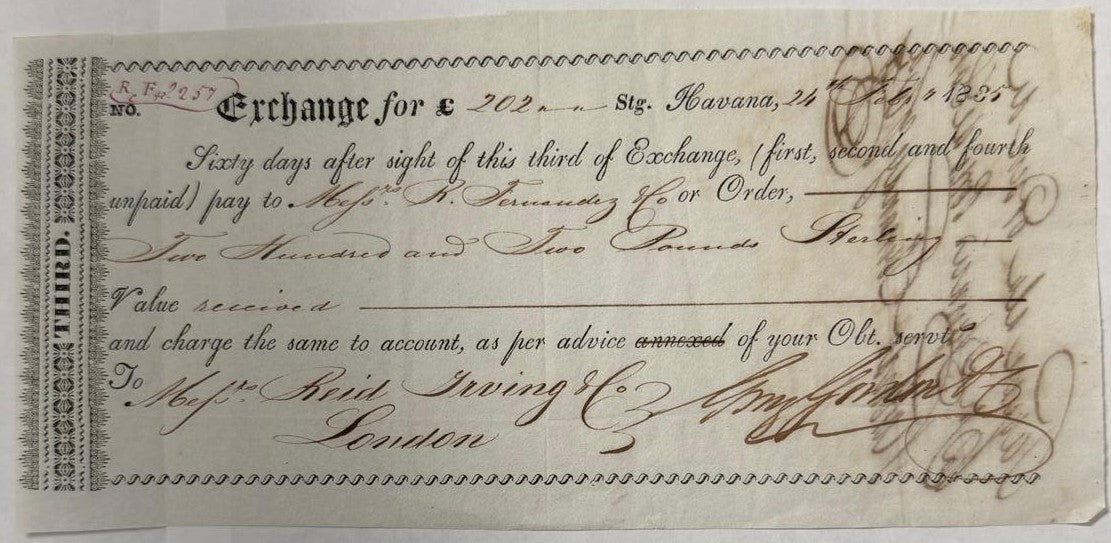 THIRD.
R. F. 2257
NO. Exchange for £ 202 Stg. Havana, 24th Feby 1835
Sixty days after sight of this third of Exchange, (first, second and fourth
unpaid) pay to Messrs. R. Fernandez & Co or Order,
Two Hundred and Two Pounds Sterling
Value received
and charge the same to account, as per advice annexed of your Obt. servts
To
Messrs. Reid Irving & Co
London